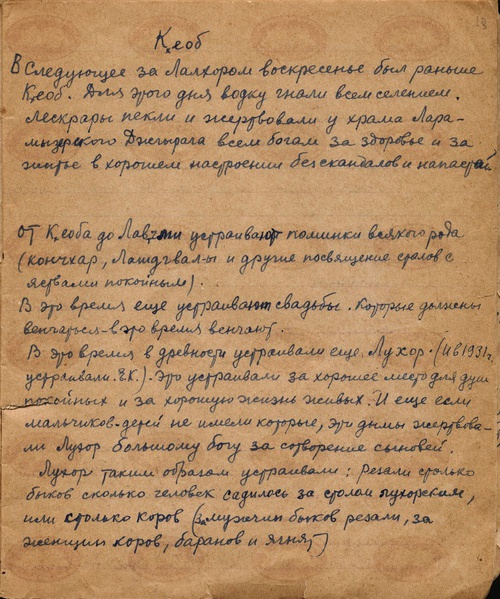 13
Кₓеоб
В Следующее за Лалхором воскресенье был раньше
Кₓеоб. Для этого дня водку гнали всем селением.
Лескрары пекли и жертвовали у храма Лара-
Джгырага всем богам за здоровье и за
житье в хорошем настроении без скандалов и напастей
от Кₓеоба до устраивают поминки всякого рода
(кончхар, Лагдгвал-ы и другие посвящение столов с
яствами покойным).
В это время еще устраивают свадьбы. Которые должны
венчаться – в это время венчают.
В это время в древности устраивали еще Лухор. (И в 1931 г.
устраивали. Е.К.). Это устраивали за хорошее место для душ
покойных и за хорошую жизнь живых. И еще если
мальчиков-детей не имели которые, эти дымы жертвова-
ли Лухор большому богу за сотворение сыновей.
Лухор таким образом устраивали: резали столько
быков сколько человек садилось за столом лухорским,
или столько коров (за мужчин быков резали, за
женщин коров, баранов и ягнят)